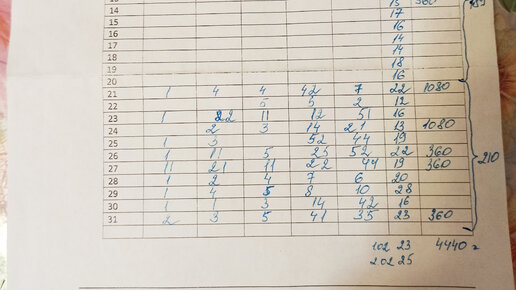 13 360
14 17
15 16
16 14
17 14
18 18
19 16
20
21 1 4 4 42 7 22 1080
22 5 5 2 12
23 1 22 11 12 51 16
24 2 3 14 21 13 1080
25 1 3 52 44 19
26 1 11 5 25 52 22 360
27 11 21 11 22 44 19 360
28 1 2 4 7 6 20
29 1 4 5 8 10 28
30 1 1 3 14 42 16
31 2 3 5 41 35 23 360
210
102 23 4440=
202 25